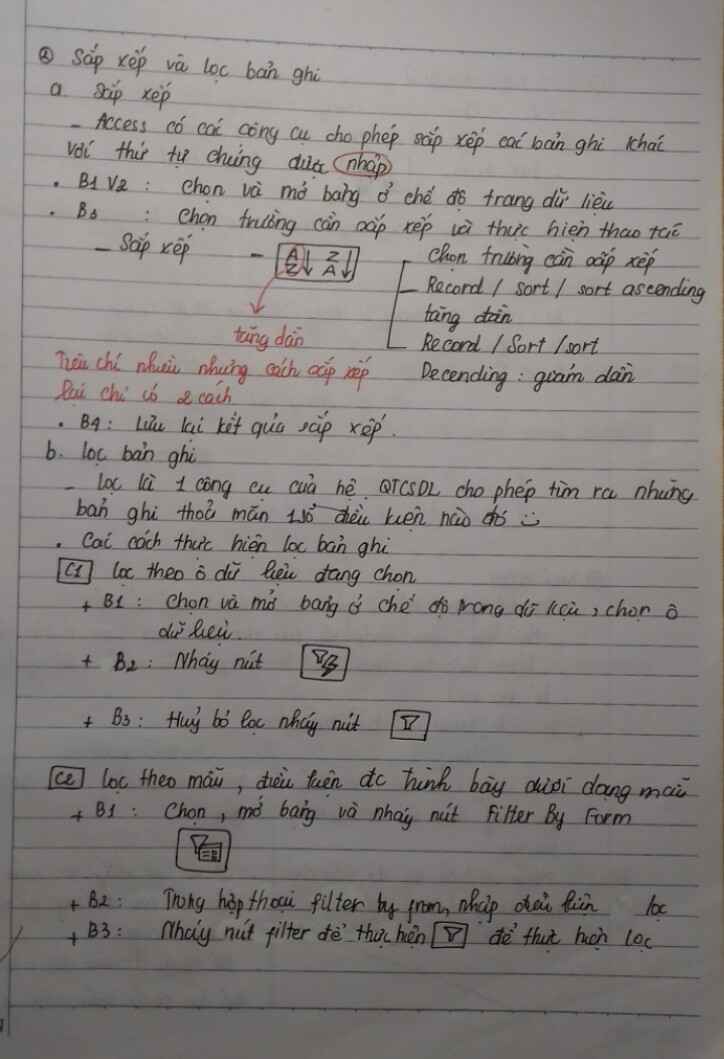 ② Sắp xếp và lọc bản ghi
a. Sắp xếp
- Access có các công cụ cho phép sắp xếp các bản ghi khác
với thứ tự chúng được nhập
• B1 V2 : Chọn và mở bảng ở chế độ trang dữ liệu
• B3 : Chọn trường cần sắp xếp và thực hiện thao tác
- Sắp xếp - A Z ↓ Z A ↓
tăng dần
- Chọn trường cần sắp xếp
- Record / sort / sort ascending
tăng dần
- Record / Sort / sort
Decending : giảm dần
Tiêu chí nhiều nhưng cách sắp xếp
lại chỉ có 2 cách
• B4 : Lưu lại kết quả sắp xếp.
b. lọc bản ghi
- lọc là 1 công cụ của hệ QTCSDL cho phép tìm ra những
bản ghi thoả mãn 1 số điều kiện nào đó
• Các cách thực hiện lọc bản ghi
C1 lọc theo ô dữ liệu đang chọn
+ B1 : Chọn và mở bảng ở chế độ trang dữ liệu, chọn ô
dữ liệu.
+ B2 : Nháy nút
+ B3 : Huỷ bỏ lọc nháy nút
C2 lọc theo mẫu, điều kiện đc trình bày dưới dạng mẫu
+ B1 : Chọn, mở bảng và nháy nút Filter By Form
+ B2 : Trong hộp thoại filter by from, nhập điều kiện lọc
+ B3 : Nháy nút filter để thực hiện để thực hiện lọc